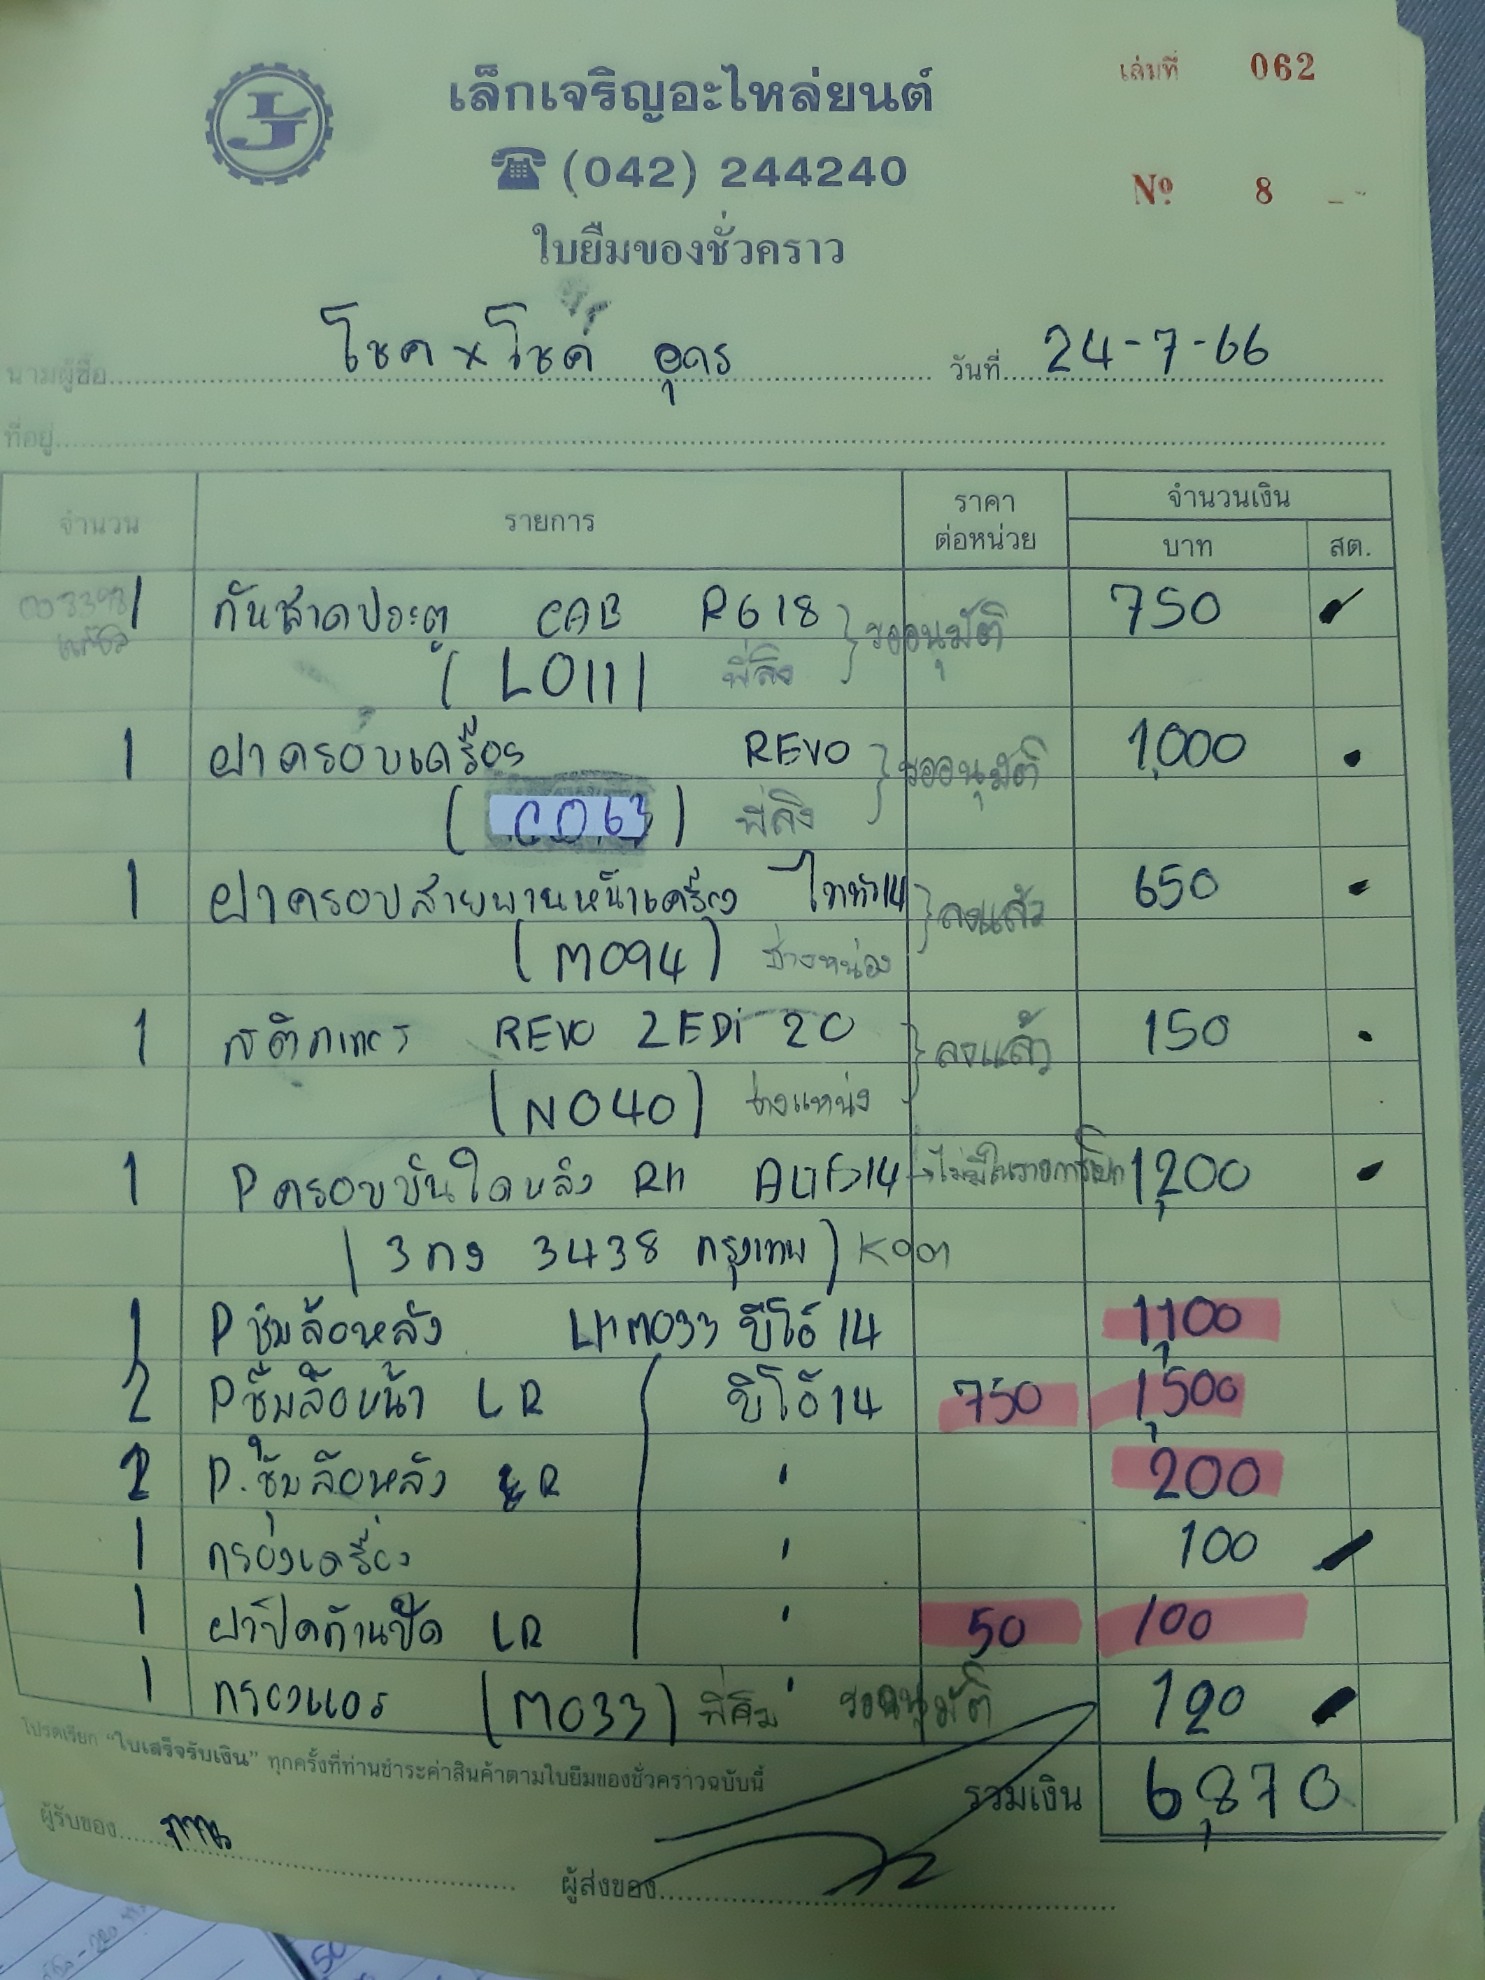 เล่มที่ 062
เล็กเจริญอะไหล่ยนต์
☎ (042) 244240
Nº 8
ใบยืมของชั่วคราว
นามผู้ซื้อ โชค x โชค อุดร วันที่ 24-7-66
ที่อยู่
จำนวน รายการ ราคาต่อหน่วย จำนวนเงิน
บาท สต.
1 กันสาดประตู CAB R618 รออนุมัติ 750
(L0111) พี่ลิง
1 ฝาครอบเครื่อง REVO รออนุมัติ 1,000
(C063) พี่ลิง
1 ฝาครอบสายพานหน้าเครื่อง ไททัน14 ลงแล้ว 650
(M094) ช่างหน่อง
1 สติกเกอร์ REVO ZEDi 20 ลงแล้ว 150
(N040) ช่างแหน่ง
1 P ครอบบันใดหลัง RH ALTIS14 ไม่มีในรายการเบิก 1,200
(3กง 3438 กรุงเทพ)
1 Pซุ้มล้อหลัง LH M033 วีโก้ 14 1,100
2 Pซุ้มล้อหน้า LR วีโก้14 750 1,500
2 P.ซุ้มล้อหลัง R " 200
1 กรองเครื่อง " 100
1 ฝาปิดก้านปัด LR " 50 100
1 กรองแอร์ (M033) " รออนุมัติ 120
โปรดเรียก "ใบเสร็จรับเงิน" ทุกครั้งที่ท่านชำระค่าสินค้าตามใบยืมของชั่วคราวฉบับนี้
รวมเงิน 6,870
ผู้รับของ
ผู้ส่งของ